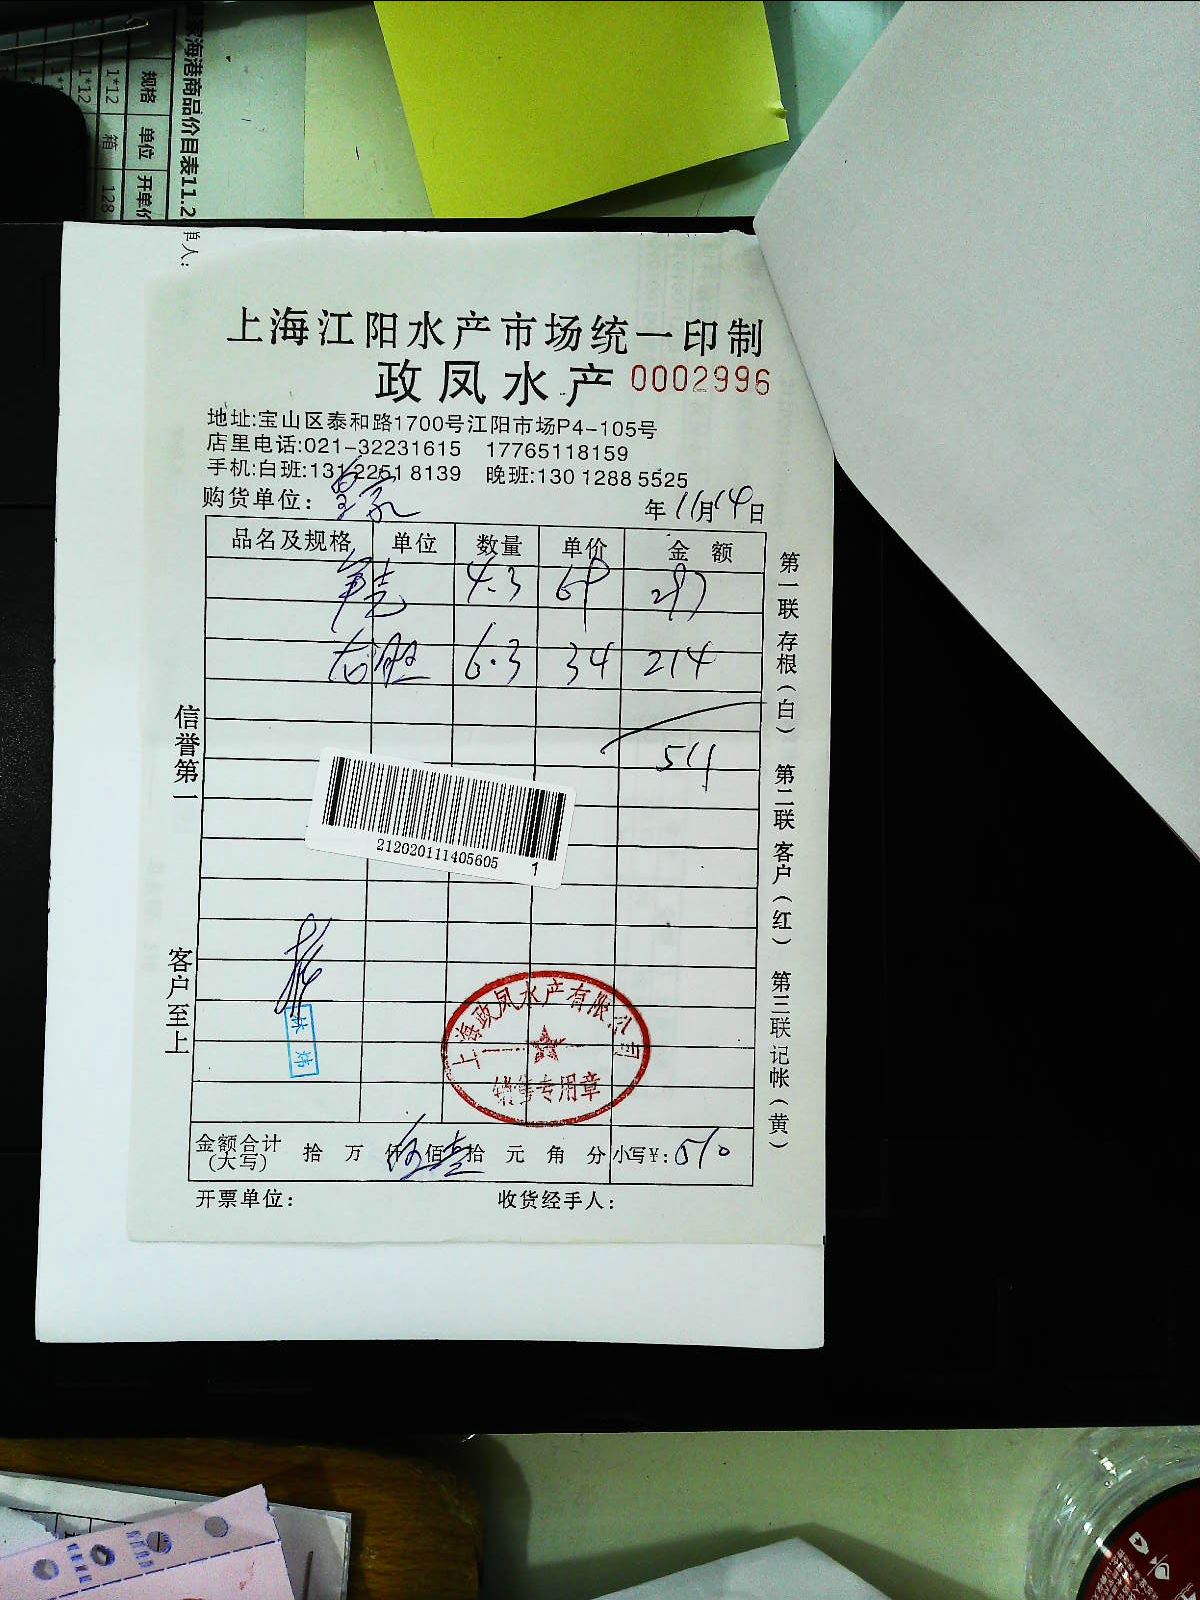 家海港商品价目表11.2
规格 单位 开单价
1*12 箱 128
1*12
单人:
上海江阳水产市场统一印制
政凤水产 0002996
地址:宝山区泰和路1700号江阳市场P4-105号
店里电话:021-32231615 17765118159
手机:白班:131 2251 8139 晚班:130 1288 5525
购货单位: 皇家 年11月14日
品名及规格 单位 数量 单价 金额
4.3 68 297
龙胆 6.3 34 214
511
212020111405605 1
信誉第一
客户至上
第一联存根(白) 第二联客户(红) 第三联记帐(黄)
林炜
上海政凤水产有限公司
销售专用章
金额合计(大写) 拾 万 仟 伍 佰 壹 拾 元 角 分 小写¥: 510
开票单位: 收货经手人: